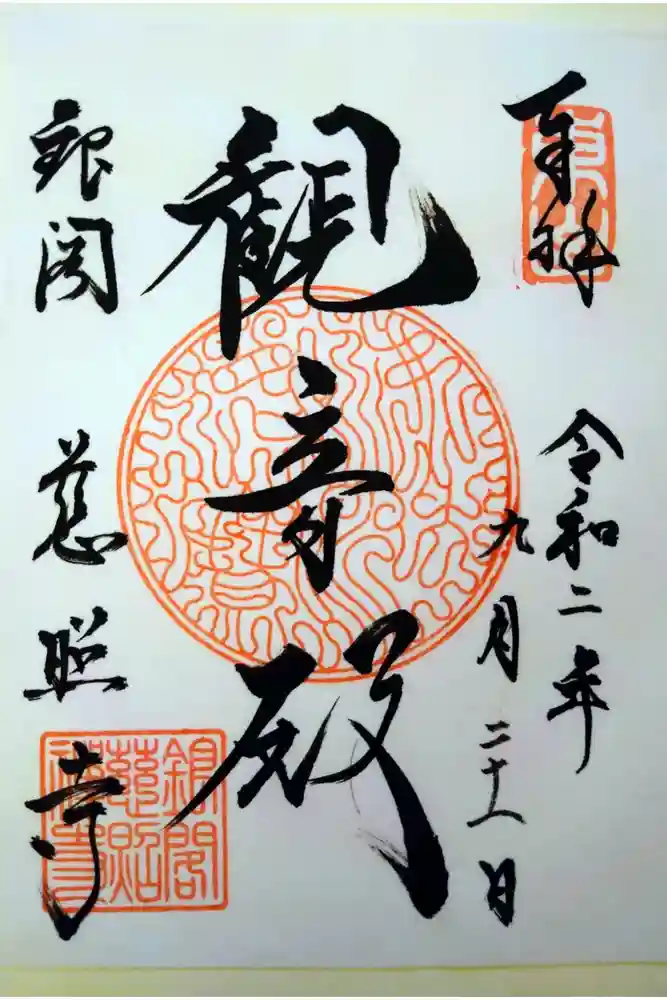 奉拝
東山
令和二年
九月二十八日
観音殿
銀閣 慈照寺
銀閣
慈照
禅寺